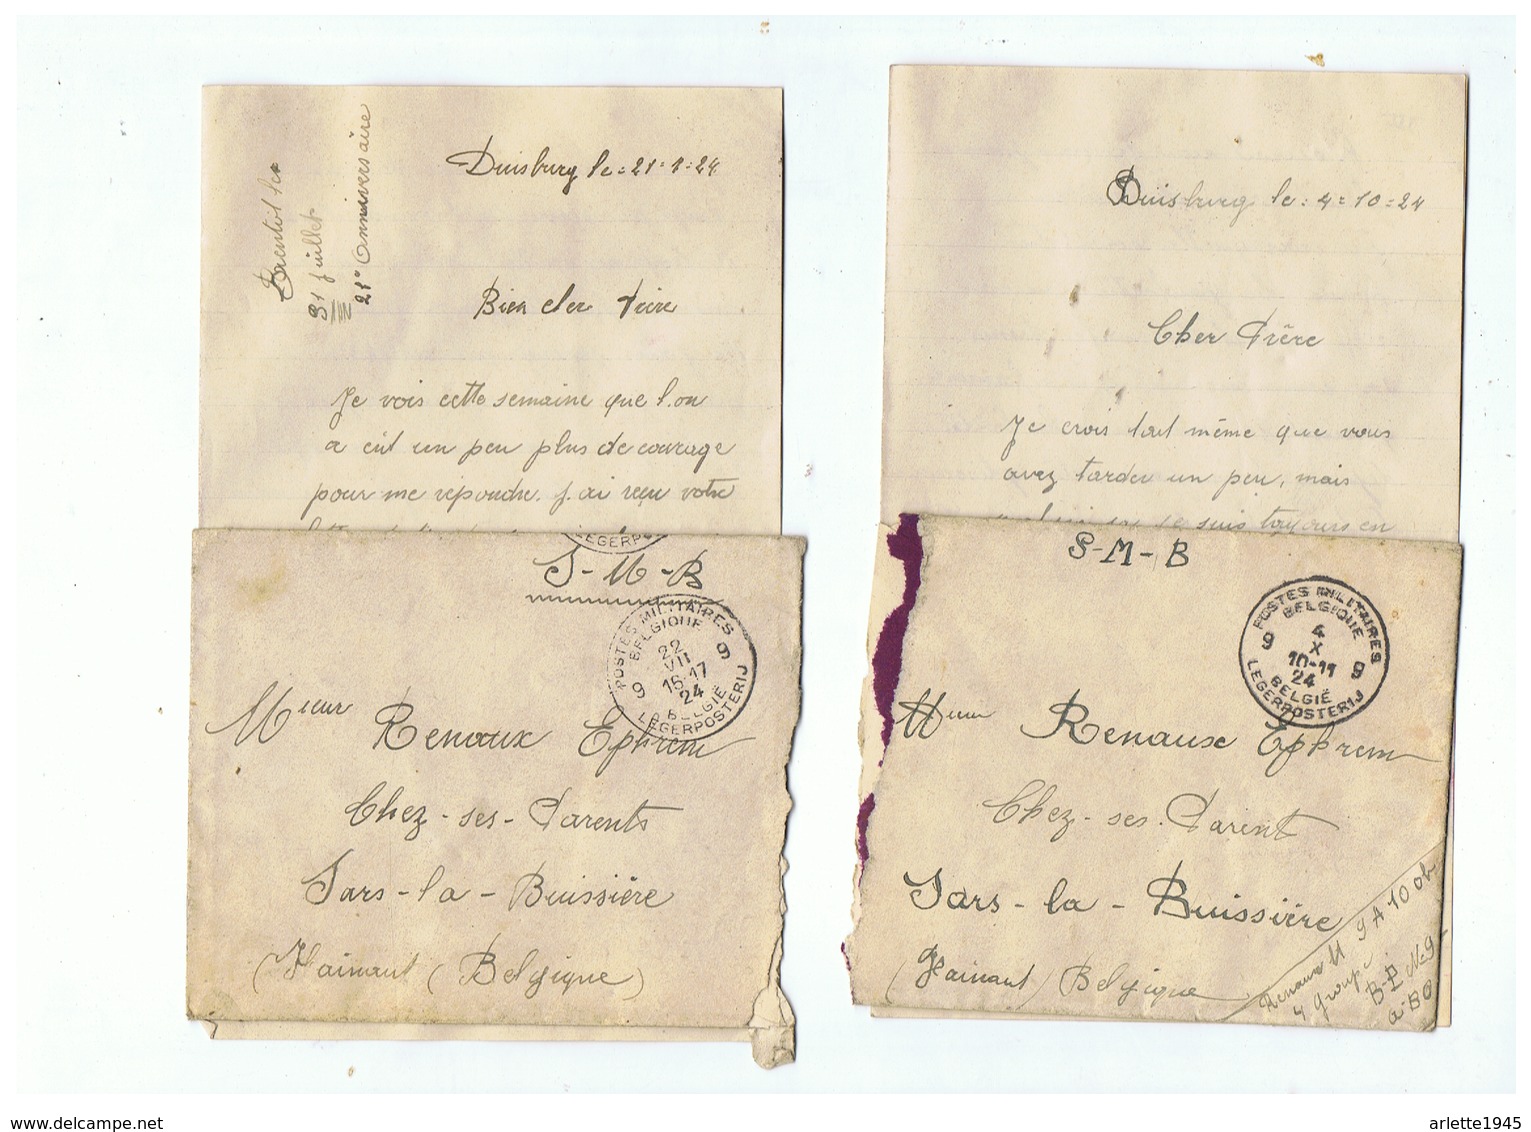 Duisburg le = 21 = 7 = 24
Bientôt les
31 juillet
21° Anniversaire
Bien cher Frère
Je vois cette semaine que l'on
a eût un peu plus de courage
pour me repondre. J'ai reçu votre
LEGERPO
S-M-B
POSTES MILITAIRES
BELGIQUE
22
VII
9 15-17 9
24
BELGIË
LEGERPOSTERIJ
Mieur Renaux Ephrem
Chez - ses - Parents
Sars - la - Buissière
(Hainaut (Belgique)
Duisburg le = 4 = 10 = 24
Cher Frère
Je crois tout même que vous
avez tarder un peu, mais
je suis toujours en
S-M-B
POSTES MILITAIRES
BELGIQUE
4
X
9 10-11 9
24
BELGIË
LEGERPOSTERIJ
Mieur Renaux Ephrem
Chez - ses - Parent
Sars - la - Buissière
(Hainaut) Belgique
Renaux M 9 A 10 ob
4 Groupe
B-P No 9
a. B O
delcampe.net
arlette1945